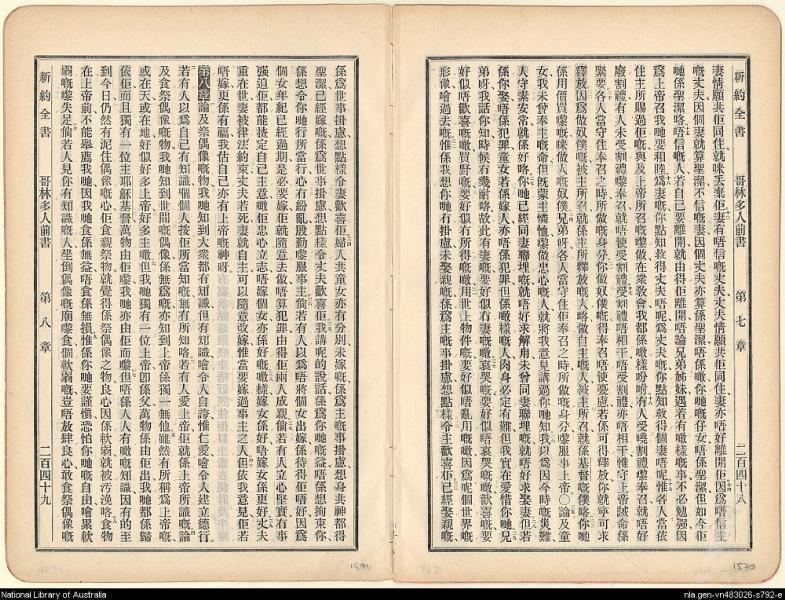 新約全書 哥林多人前書 第七章 二百四十八
妻情願共佢同住就咪丟棄佢妻有唔信嘅丈夫丈夫情願共佢同住妻亦唔好離開佢因爲唔信主
嘅丈夫因個妻就算聖潔不信嘅妻因個丈夫亦算聖潔唔係噉你哋嘅仔女唔係聖潔但如今佢
哋係聖潔咯唔信嘅人若自己要離開就由得佢離開唔論兄弟姊妹遇着有噉樣嘅事不必勉强因
爲上帝召我哋要和睦爲妻嘅你點知救得丈夫唔呢爲丈夫嘅你點知救得個妻唔呢惟各人當依
住主所賜過佢嘅與及上帝所召嘅嚟做在衆敎會我都係噉樣吩咐有人受曉割禮嚟奉召就唔好
廢割禮有人未受割禮嚟奉召就唔使受割禮受割禮唔相干唔受割禮亦唔相干惟守上帝誡命係
緊要各人當守住奉召之時所做嘅身分你做奴僕嘅得奉召唔使憂慮若係可得釋放你就寧可求
釋放因爲做奴僕嘅被主所召就係主所釋放嘅人咯做自主嘅人被主所召就係基督嘅僕咯你哋
係用價買嚟嘅咪做人嘅奴僕兄弟呀各人當守住佢奉召之時所做嘅身分嚟服事上帝〇論及童
女我未曾奉主嘅命但旣蒙主憐恤嚟做忠心嘅人就將我意見講過你哋知我以爲因今時嘅災難
人守素安常就係好咯你哋已經同妻聯埋嘅就唔好求解甪未曾同妻聯埋嘅就唔好求娶妻但若
係你娶唔係犯罪童女若係嫁人亦唔係犯罪但係噉樣嘅人肉身必定有難但我實在愛惜你哋兄
弟呀我話你知時候有幾耐咯故此有妻嘅要好似冇妻嘅噉哀哭嘅要好似唔哀哭嘅噉歡喜嘅要
好似唔歡喜嘅噉買野嘅要好似冇所得嘅噉用世上物件嘅要好似唔亂用嘅噉因爲呢個世界嘅
形像嚊過去嘅惟係我想你哋冇掛慮未娶親嘅係爲主嘅事掛慮想點樣令主歡喜佢已經娶親嘅
係爲世事掛慮想點樣令妻歡喜佢婦人共童女亦有分別未嫁嘅係爲主嘅事掛慮想身共神都得
聖潔已經嫁嘅係爲世事掛慮想點樣令丈夫歡喜佢我講呢的說話係爲你哋嘅益唔係想拘束你
係想令你哋行所當行心冇紛亂殷勤嚟服事主倘若有人以爲唔將個女出嫁係待得佢唔好因爲
個女年紀已經過期是必要嫁佢就隨意去做唔算犯罪由得佢兩人成親倘若有人立心堅實冇事
强迫佢都能搘定自己主意嘅佢忠心立志唔嫁個女亦係好嘅噉樣嫁女係好唔嫁女係更好丈夫
重在世妻被律法約束丈夫若死妻就自主可以隨意改嫁惟當要嫁過事主之人但依我意見佢若
唔嫁更係有福我估自己亦有上帝嘅神呀
第八章論及祭偶像嘅物我哋知到大衆都有知識但有知識嚊令人自誇惟仁愛嚊令人建立德行
若有人以爲自己有知識呢個人按佢所當知嘅重未有所知咯若有人愛上帝佢就係上帝所識嘅論
及食祭偶像嘅物我哋知到世間嘅偶像係無爲嘅亦知到上帝係獨一無他雖然有所稱爲上帝嘅
或在天或在地好似好多上帝好多主噉但我哋獨有一位上帝卽係父萬物係由佢出我哋都係歸
依佢而且獨有一位主耶穌基督萬物由佢嚟我哋亦由佢而嚟但唔係人人有噉嘅知識因有的至
到今日仍然有泥住偶像嘅心佢食嚫祭物就覺得係祭偶像之物良心因係軟弱就被污浼咯食物
在上帝前不能舉薦我哋因我哋食係無益唔食係無損惟係你哋要謹愼恐怕你哋嘅自由嚊累軟
弱嘅嚟失足倘若人見你有知識嘅人坐倒偶像嘅廟嚟食個軟弱嘅豈唔放肆良心敢食祭偶像嘅
新約全書 哥林多人前書 第八章 二百四十九
1570
1571
National Library of Australia
nla.gen-vn483026-s792-e